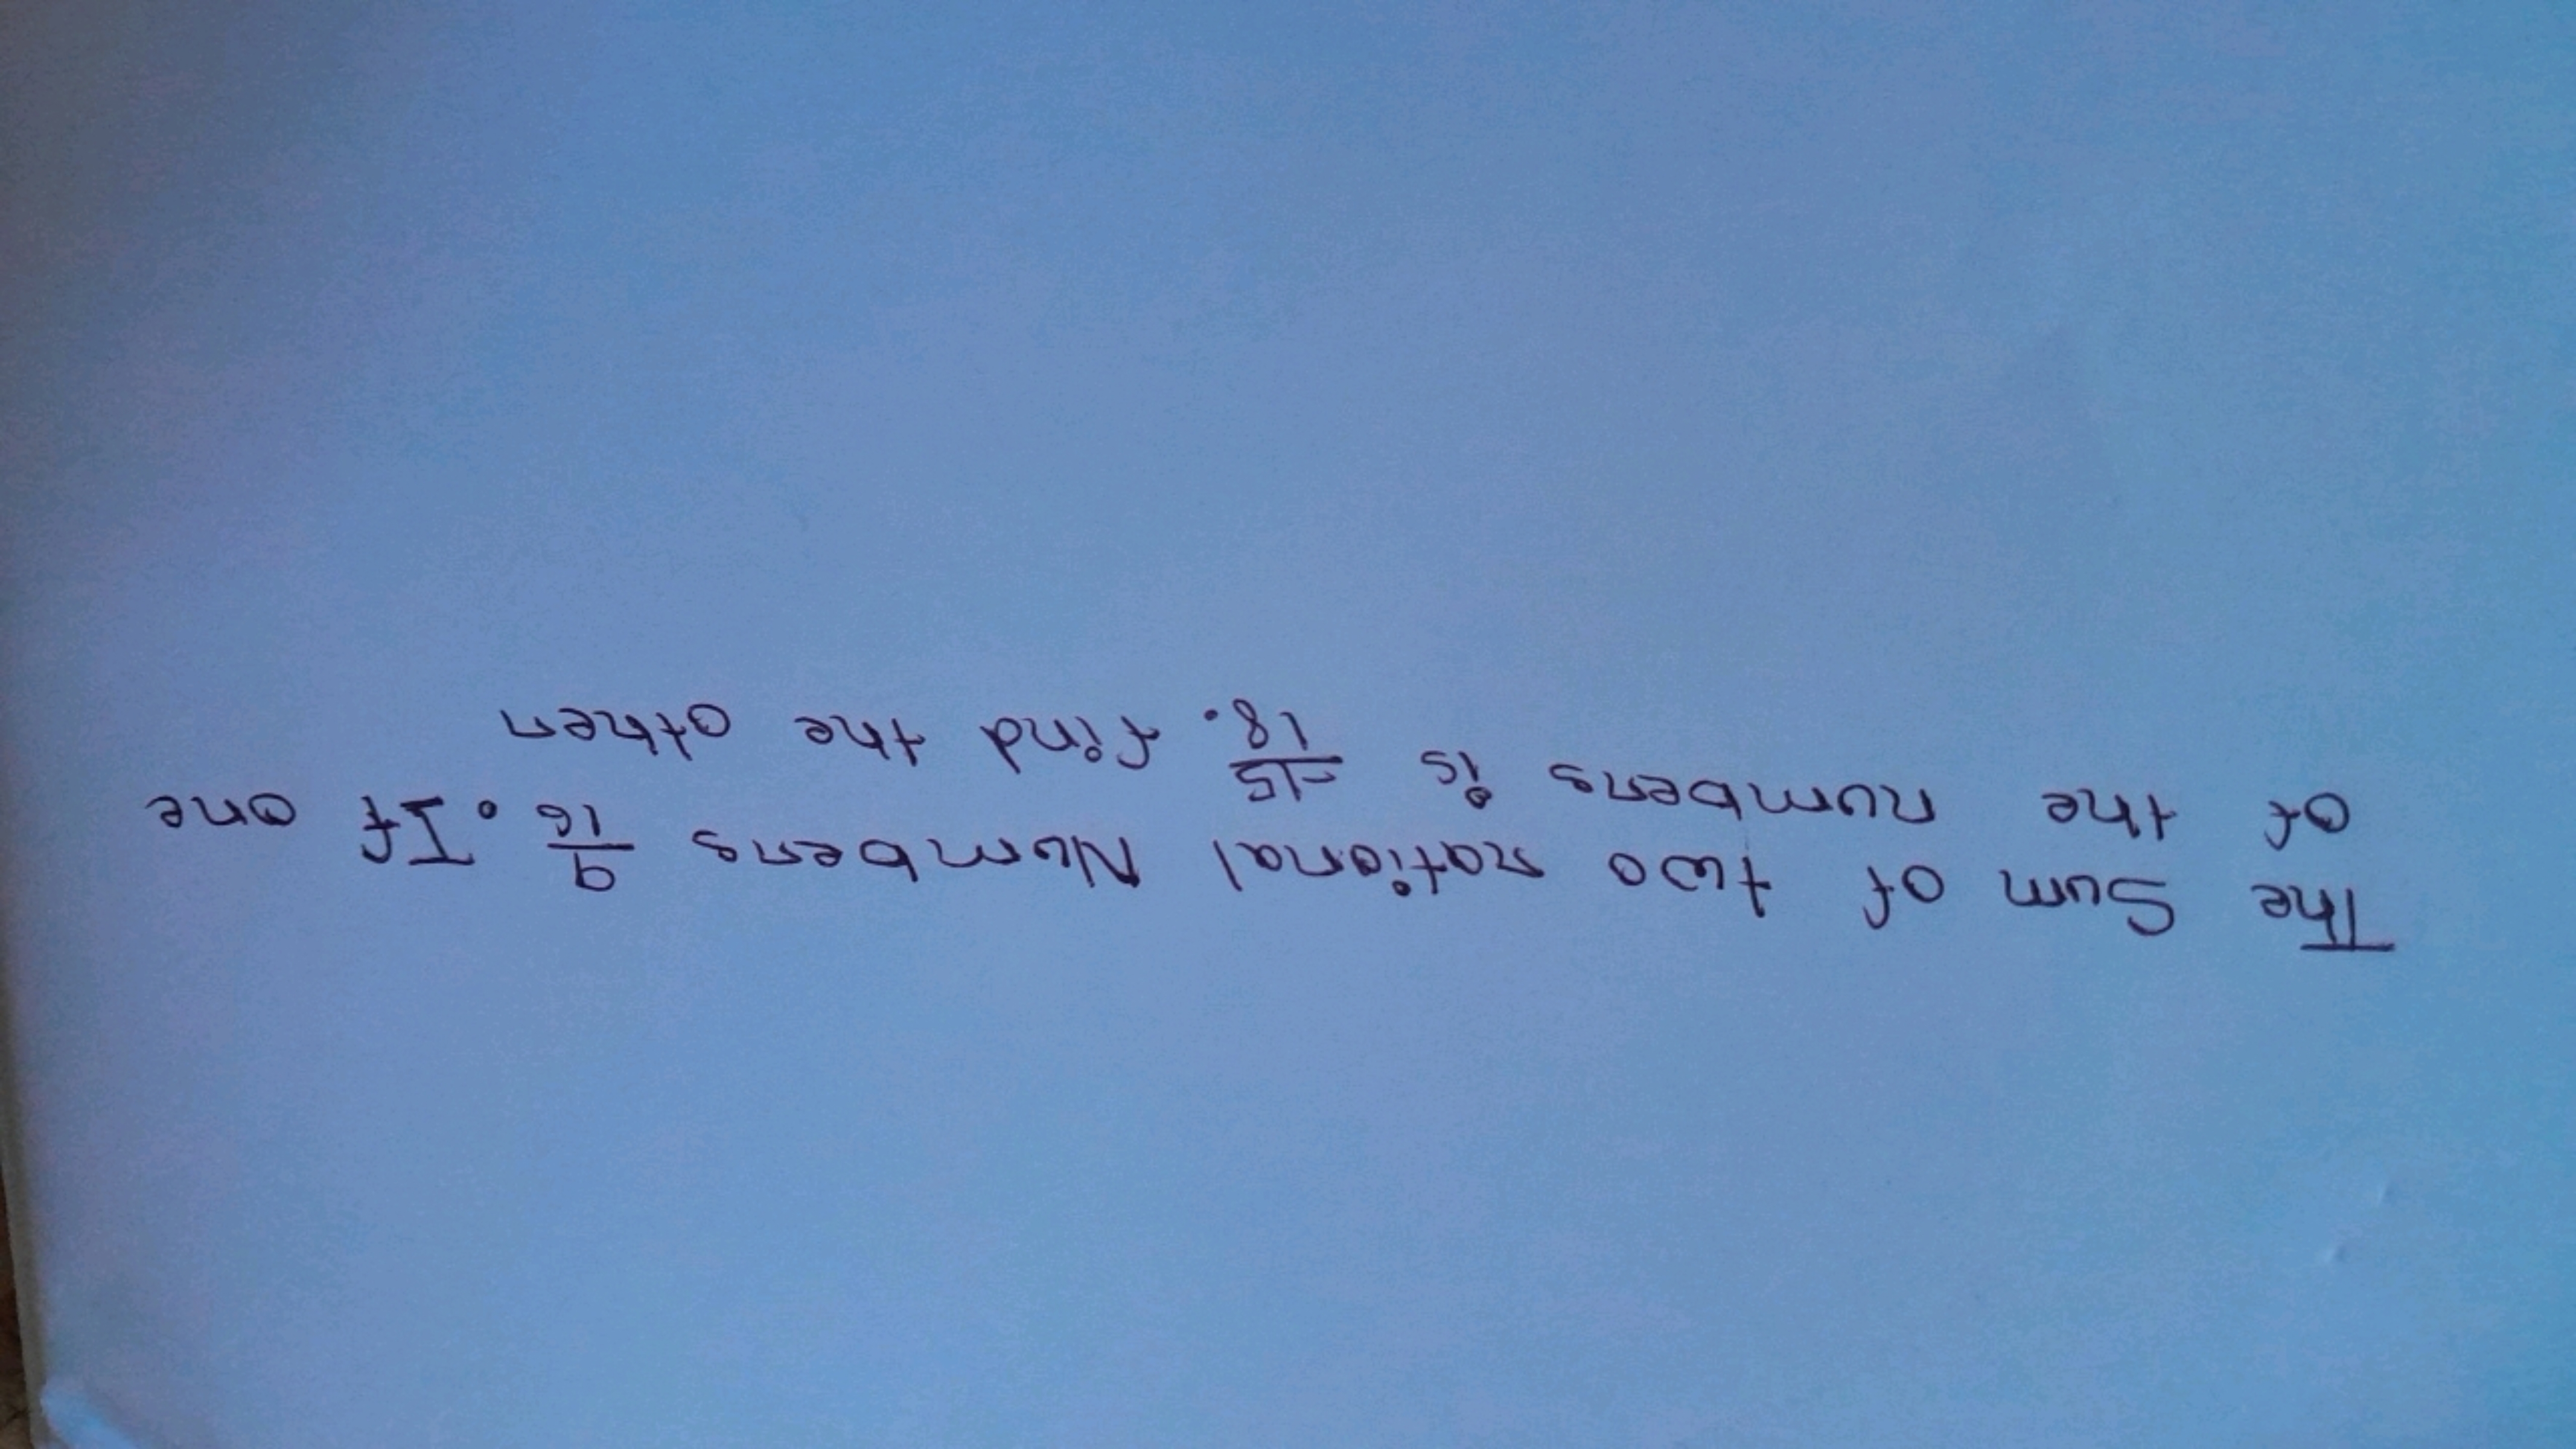 The Sum of two rational Numbers 9/16. If one
of the numbers is -15/18. find the other